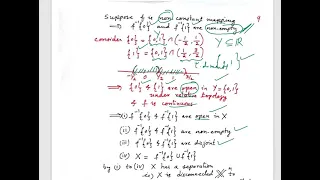 Suppose f is non constant mapping 9
⇒ f⁻¹{0} and f⁻¹{1} are non-empty
consider {0} = {0,1} ∩ (-1/2, 1/2) Y ⊆ R
{1} = {0,1} ∩ (1/2, 3/2)
-1/2 0 1/2 1 3/2
⇒ {0} & {1} are open in Y = {0,1}
under relative topology
& f is continuous
⇒ (i) f⁻¹{0} & f⁻¹{1} are open in X
(ii) f⁻¹{0} & f⁻¹{1} are non-empty
(iii) f⁻¹{0} & f⁻¹{1} are disjoint
(iv) X = f⁻¹{0} ∪ f⁻¹{1}
by (i) to (iv) X has a separation
X is disconnected